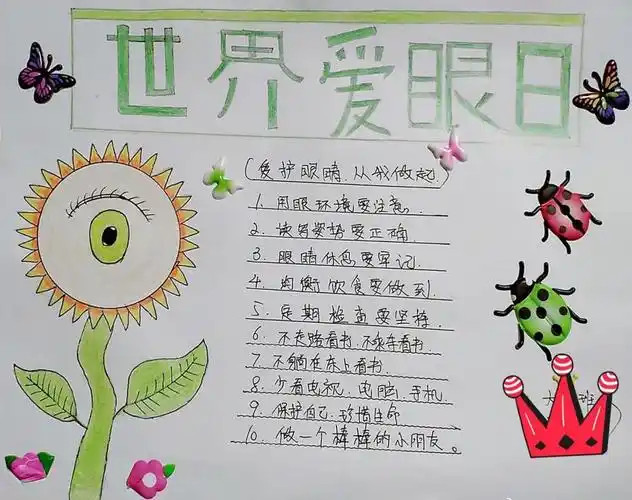 世界爱眼日
(爱护眼睛.从我做起.)
1. 用眼环境要注意.
2. 读写姿势要正确.
3. 眼睛休息要牢记.
4. 均衡饮食要做到.
5. 定期检查要坚持.
6. 不走路看书.不乘车看书.
7. 不躺在床上看书.
8. 少看电视.电脑.手机.
9. 保护自己.珍惜生命
10. 做一个棒棒的小朋友。
大 班